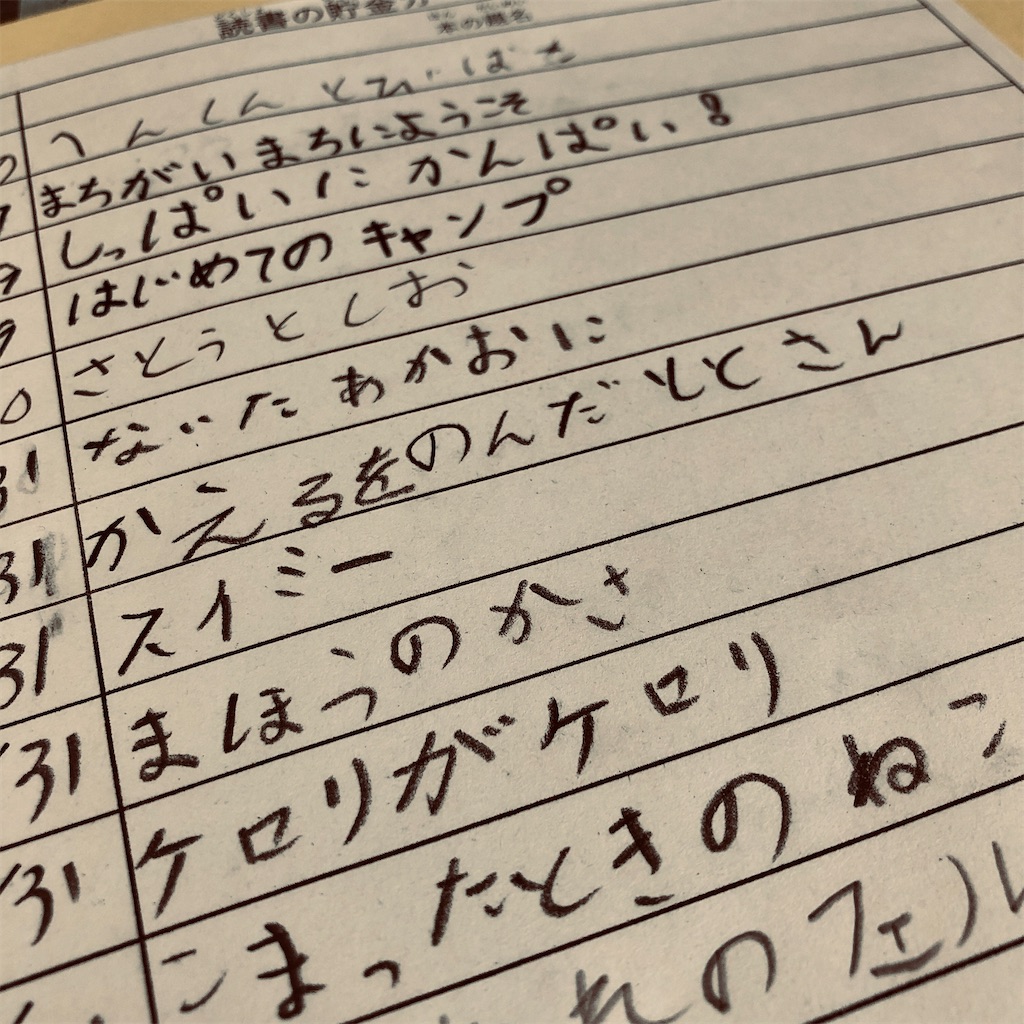 読書の貯金
本の題名
へんしんとびばこ
まちがいまちにようこそ
しっぱいにかんぱい!
はじめての キャンプ
さとうとしお
ないたあかおに
31 かえるをのんだととさん
31 スイミー
31 まほうのかさ
31 ケロリがケロリ
こまったときのねこ
れのフェル